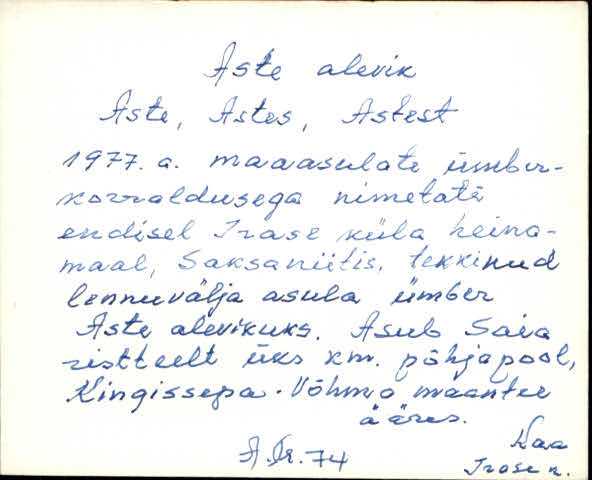 Aste alevik
Aste, Astes, Astest
1977. a. maaasulate ümber-
korraldusega nimetati
endisel Irase küla heina-
maal, Saksaniitis, tekkinud
lennuvälja asula ümber
Aste alevikuks. Asub Saia
ristteelt üks km. põhjapool,
Kingissepa - Võhma maantee
ääres.
Kaa
Irase k.
74